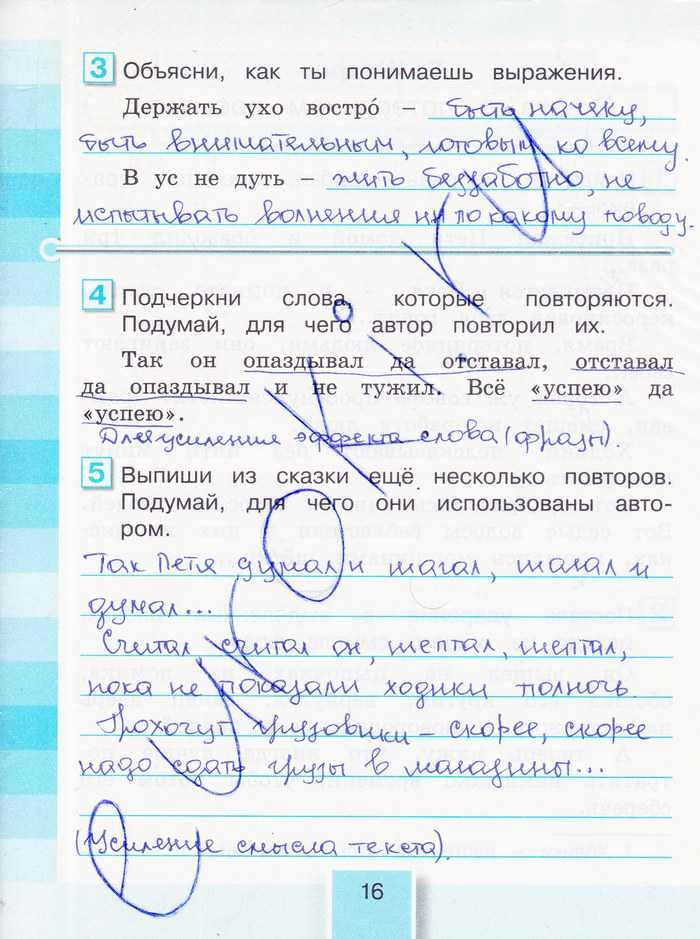 3 Объясни, как ты понимаешь выражения.
Держать ухо востро́ – быть начеку,
быть внимательным, готовым ко всему.
В ус не дуть – жить беззаботно, не
испытывать волнения ни по какому поводу.
4 Подчеркни слова, которые повторяются.
Подумай, для чего автор повторил их.
Так он опаздывал да отставал, отставал
да опаздывал и не тужил. Всё «успею» да
«успею».
Для усиления эффекта слова (фразы)
5 Выпиши из сказки ещё несколько повторов.
Подумай, для чего они использованы авто-
ром.
Так Петя думал и шагал, шагал и
думал...
Считал считал он, шептал, шептал,
пока не показали ходики полночь.
Грохочут грузовики – скорее, скорее
надо сдать грузы в магазины...
(Усиление смысла текста).
16